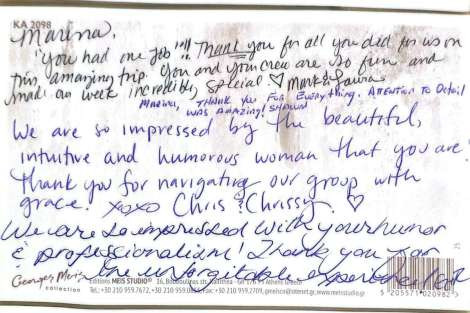 KA 2098
Marina,
"You had one Job"!!! Thank you for all you did for us on
this amazing trip. You and your crew are so fun and
made our week incredibly special ♡ Mark & Laura
Marina, Thank you for everything. Attention to Detail
was amazing! Shawn
We are so impressed by the beautiful,
intuitive and humorous woman that you are.
Thank you for navigating our group with
grace. xoxo Chris & Chrissy ♡
We are so impressed with your humor
& professionalism! Thank you for
the unforgitable experience!
Georges Meis
collection
Editions MEIS STUDIO®
Athens Greece
Tel.: +30 210 959.7672, +30 210 959 Fax: +30 210 959.2709, www.meisstudio.gr
5 205571 020982